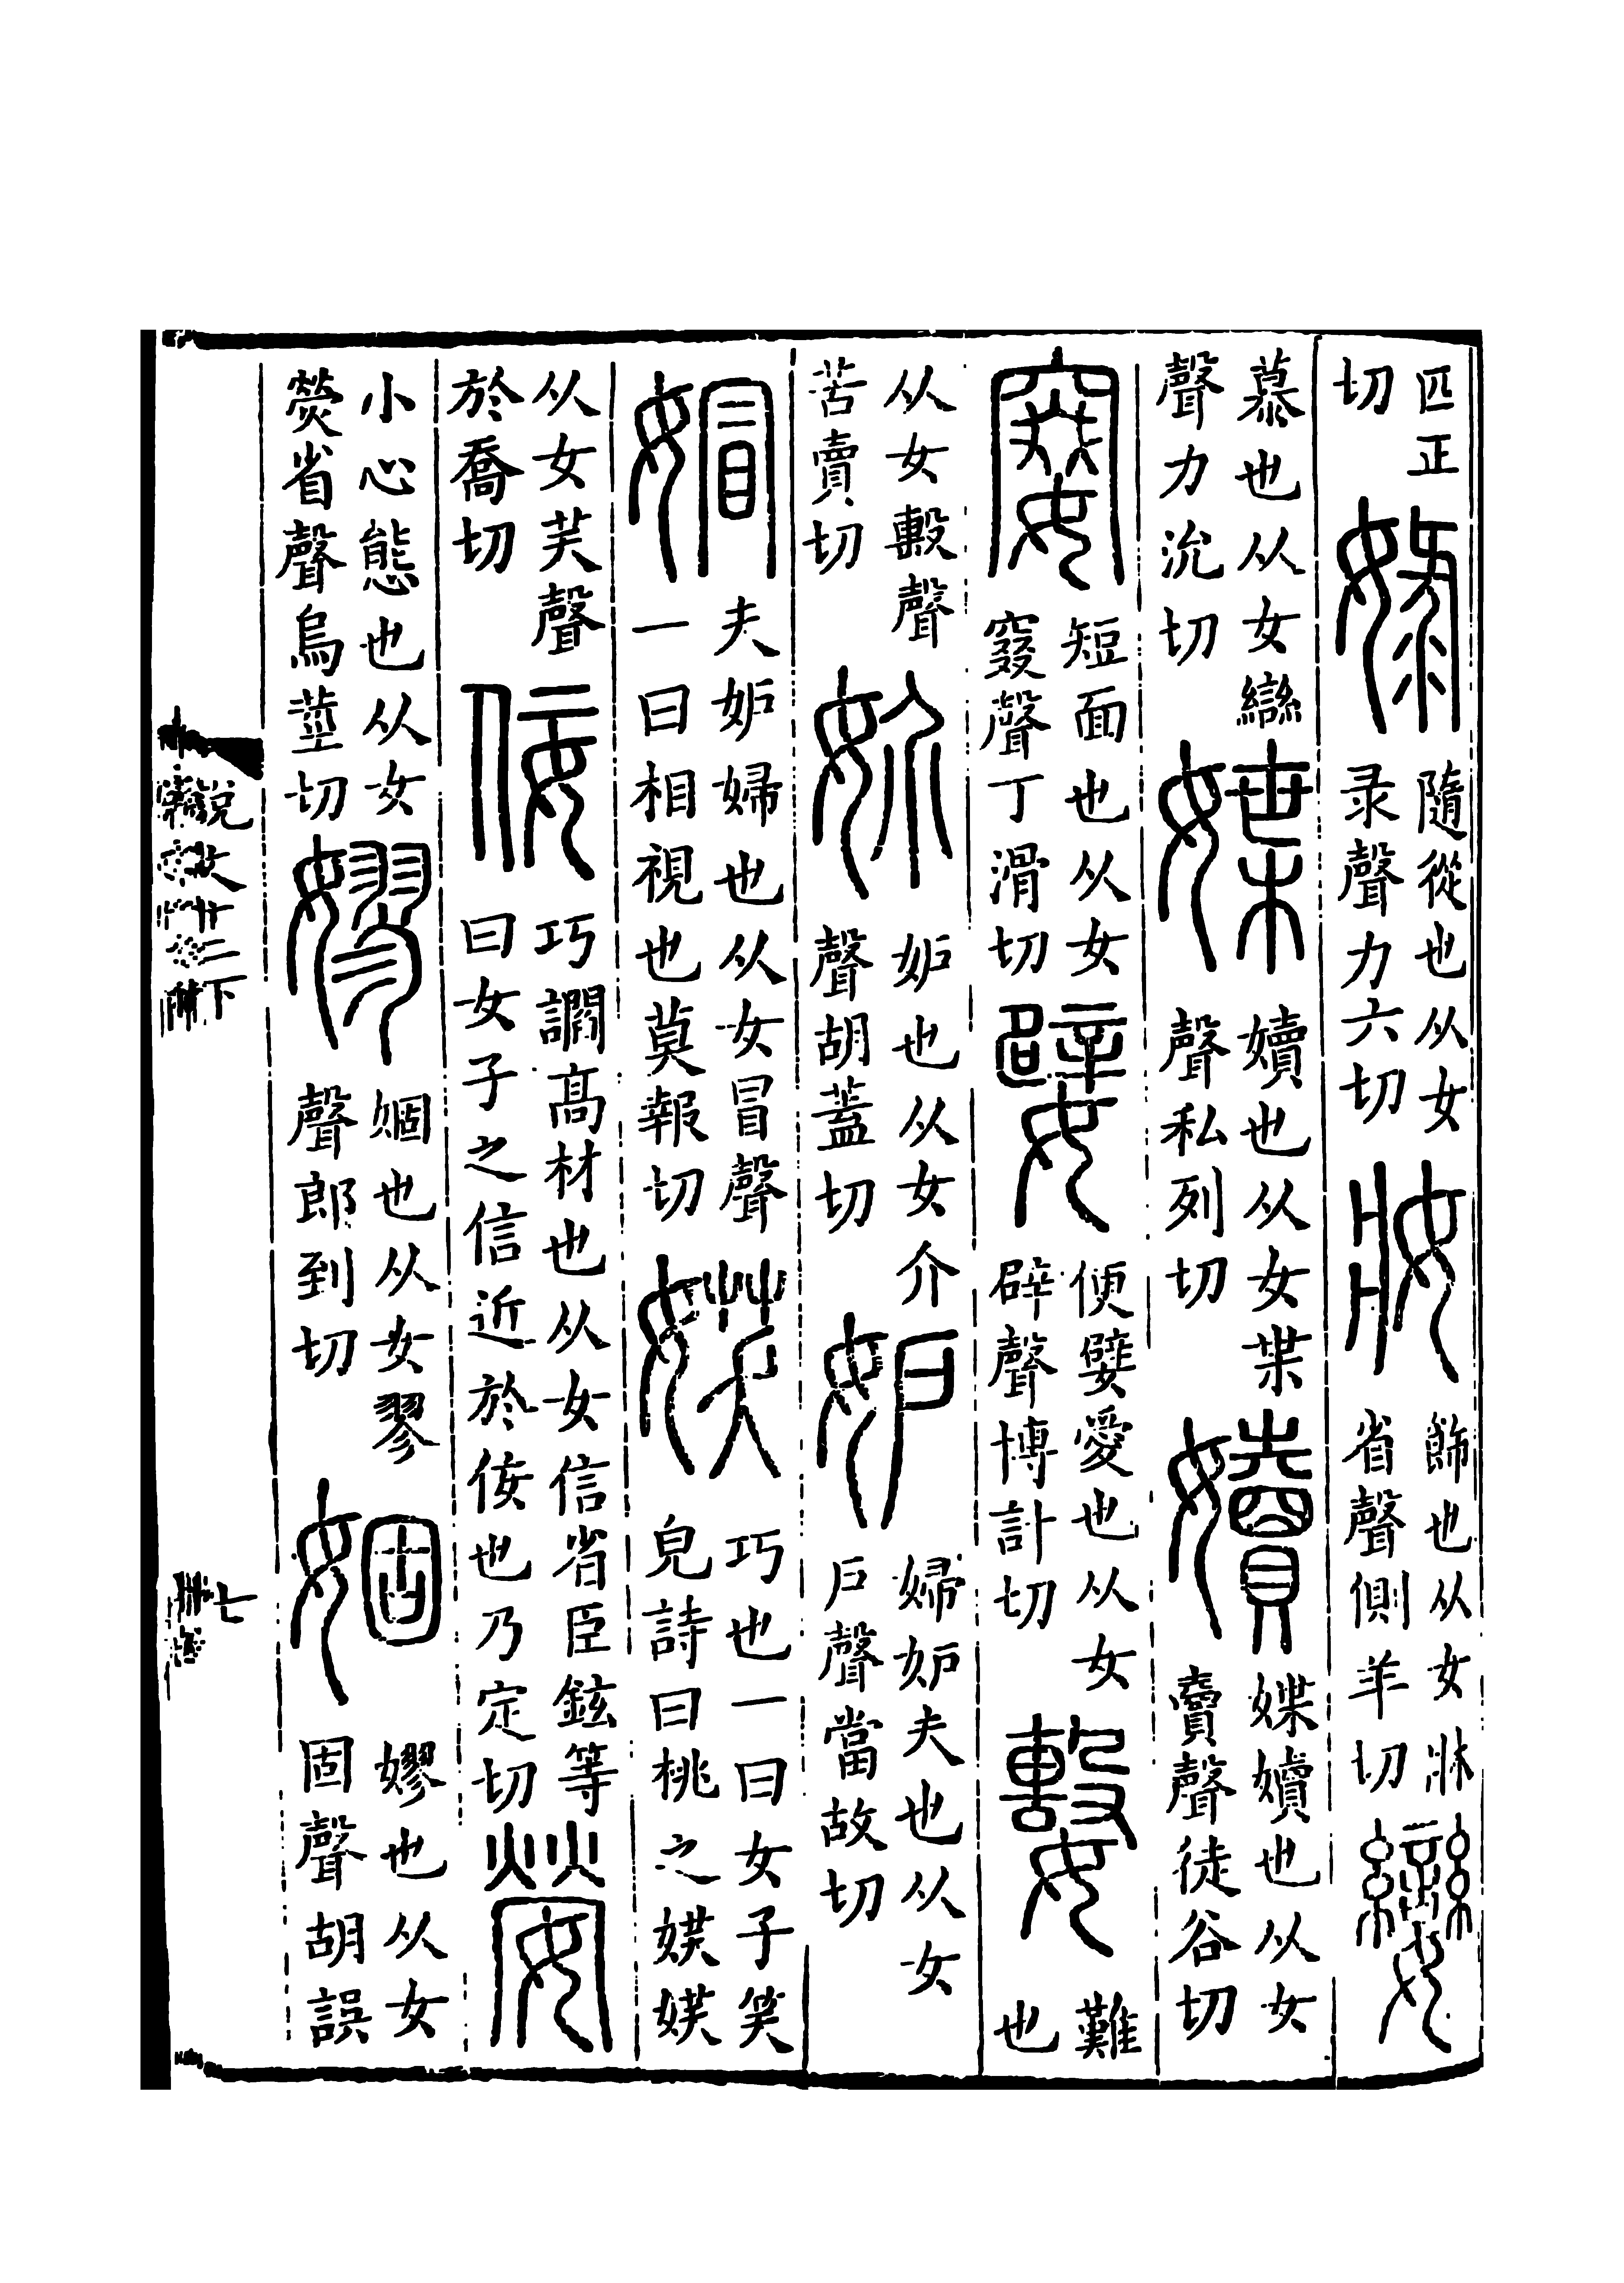 匹正切婐隨從也从女录聲力六切妝飾也从女牀省聲側羊切孌
慕也从女䜌聲力沇切媟嬻也从女枼聲私列切嬻媟嬻也从女𧶠聲徒谷切
窡短面也从女窡聲丁滑切嬖便嬖愛也从女辟聲博計切嫛難也
从女毄聲苦賣切妎妒也从女介聲胡蓋切妒婦妒夫也从女戶聲當故切
媢夫妒婦也从女冒聲一曰相視也莫報切媄巧也一曰女子笑皃詩曰桃之媄媄
从女芺聲於喬切佞巧讇高材也从女信省臣鉉等曰女子之信近於佞也乃定切嫈
小心態也从女熒省聲烏莖切嫪婟也从女翏聲郎到切婟嫪也从女固聲胡誤
說文十二下
七